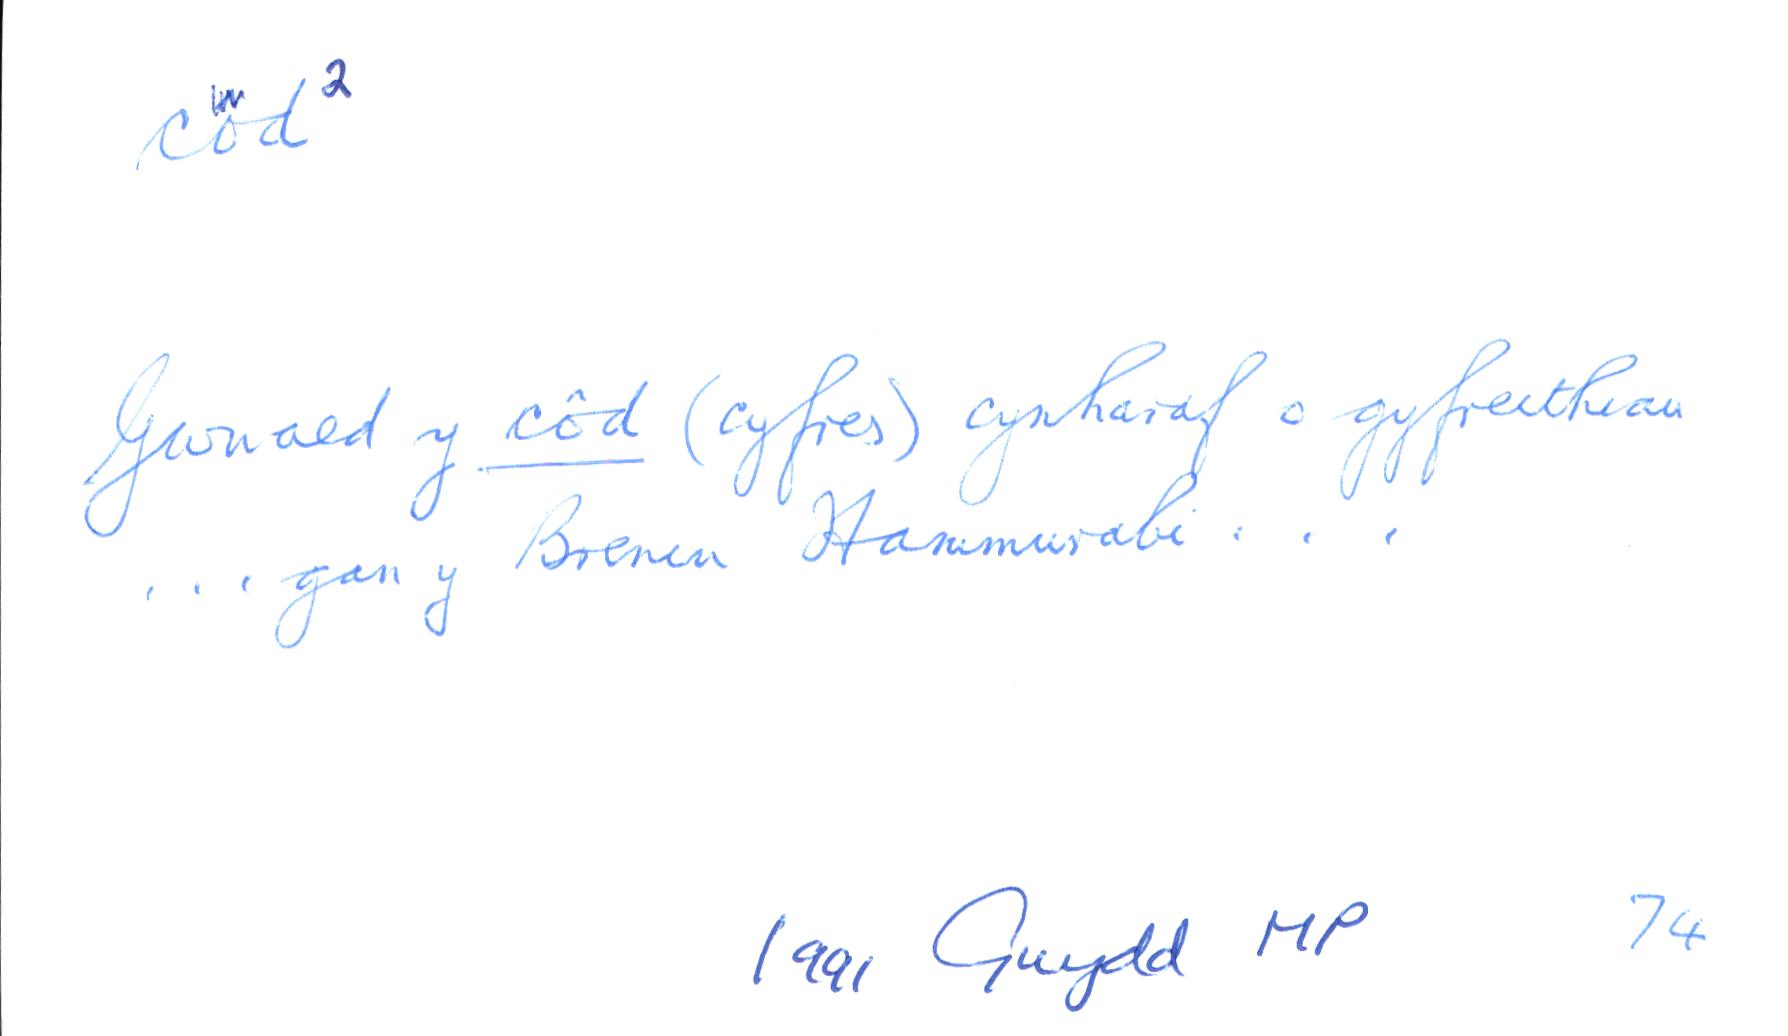 côd 2
Gwnaed y côd (cyfres) cynharaf o gyfreithiau
... gan y Brenin Hammurabi . . .
1991 Gwydd MP 74